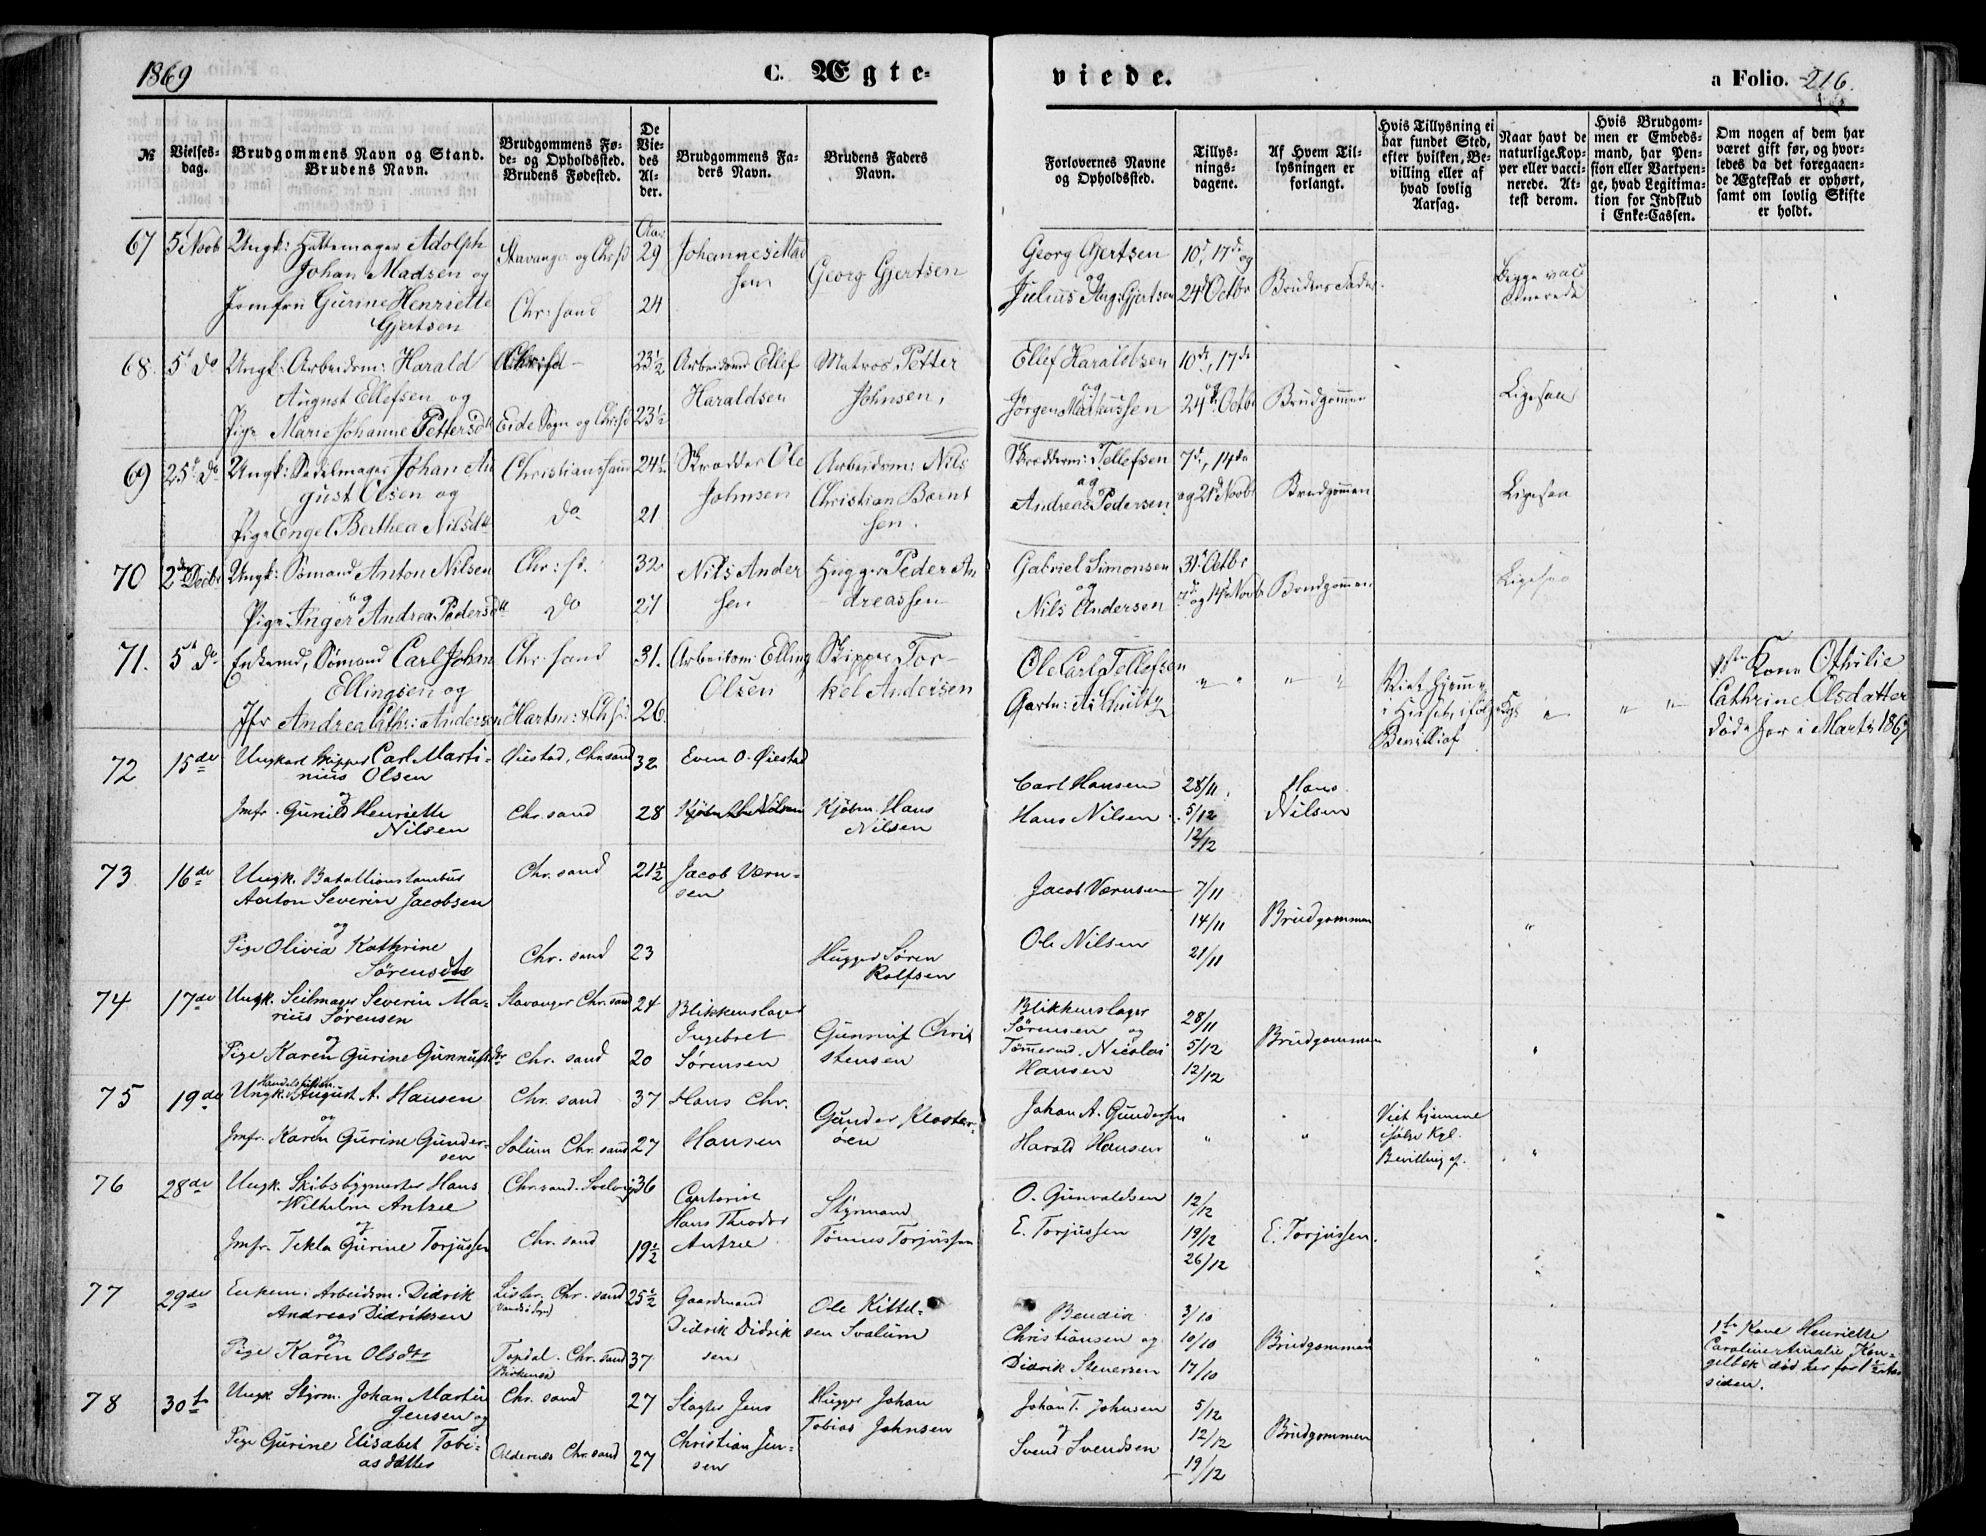 1869
C. Ægte-
viede.
a Folio. 216.
№
Vielses-
dag.
Brudgommens Navn og Stand.
Brudens Navn.
Brudgommens Fø-
de- og Opholdssted.
Brudens Fødested.
De
Vie-
des
Al-
der.
Brudgommens Fa-
ders Navn.
Brudens Faders
Navn.
Forlovernes Navne
og Opholdssted.
Tillys-
nings-
dagene.
Af Hvem Til-
lysningen er
forlangt.
Hvis Tillysning ei
har fundet Sted,
efter hvilken, Be-
villing eller af
hvad lovlig
Aarsag.
Naar havt de
naturlige Kop-
per eller vacci-
nerede. At-
test derom.
Hvis Brudgom-
men er Embeds-
mand, har Pen-
sion eller Vartpen-
ge, hvad Legitima-
tion for Indskud
i Enke-Cassen.
Om nogen af dem har
været gift før, og hvor-
ledes da det foregaaen-
de Ægteskab er ophørt,
samt om lovlig Skifte
er holdt.
67 5t Novb Ungk: Hattemager Adolph
Johan Madsen og
Jomfru Gurine Henriette
Gjertsen
Stavanger og Chr:sd
Chr: sand
Aar
29
24
Johannes Mad
sen
Georg Gjertsen
Georg Gjertsen
og
Julius Aug: Gjertsen
10d, 17de og
24d Octbr
Brudens Fader
Begge vac
cinerede
68. 5t do Ungk: Arbeidsm: Harald
August Ellefsen og
Pige Marie Johanne Pettersdt
Chr:sd
Eide Sogn og Chr:sd
23½
23½
Arbeidsmd Ellef
Haraldsen
Matros Petter
Johnsen,
Ellef Haraldsen
og
Jørgen Mathussen
10de, 17de
og
24d Octbr
Brudgommen
Ligesaa
69 25t do Ungk: Sadelmager Johan Au
gust Olsen og
Pige Engel Berthea Nilsdtt
Christianssand
do
24½
21
Skrædder Ole
Johnsen
Arbeidsm: Nils
Christian Bernt
sen.
Skrædderm: Tellefsen
og
Andreas Pedersen
7d, 14de
og 21d Novbr
Brudgommen
Ligesaa
70 2den Decbr Ungk: Sømand Anton Nilsen
og
Pige Inger Andrea Pedersdtt
Chr: sd.
do
32
27
Nils Ander
sen
Hugger Peder An
dreassen
Gabriel Simonsen
og
Nils Andersen
31t Octbr
7d og 14d Novb
Brudgommen
Ligesaa
71. 5t do Enkemd, Sømand Carl Johan
Ellingsen og
Jfr Andrea Cathr: Andersen
Chr: sand
Hartm: & Ch sd.
31.
26.
Arbeidsm: Elling
Olsen
Skipper Tor-
kel Andersen
Ole Carl Tellefsen
Gartn: A: Schultz
Viet hjemme
i Huset, ifølge Kgl
Bevilling af
1ste Kone Othilie
Cathrine Olsdatter
døde her i Marts 1867
72 15de Ungkarl Skipper Carl Marti-
nius Olsen
og
Jmfr. Gunild Henriette
Nilsen
Øiestad, Chr.sand
Chr. sand
32
28
Even O. Øiestad
Kjøbm. Hans
Nilsen
Carl Hansen
Hans Nilsen
28/11.
5/12
12/12
Hans
Nilsen
73 16de Ungk. Bataillonstambur
Anton Severin Jacobsen
og
Pige Olivia Kathrine
Sørensdtr
Chr. sand
Chr. sand
21½
23
Jacob Værn-
sen
Hugger Søren
Rolfsen
Jacob Værnsen
Ole Nilsen
7/11
14/11
21/11
Brudgommen
74 17de Ungk. Seilmager Severin Ma-
rius Sørensen
og
Pige Karen Gurine Gunnufsdtr
Stavanger Chr. sand
Chr. sand
24
20
Blikkenslager
Ingebret
Sørensen
Gunnuf Chri
stensen
Blikkenslager
Sørensen og
Tømmermd. Nicolai
Hansen
28/11
5/12
12/12
Brudgommen
75 19de Ungk. August A. Hansen
og
Jmfr. Karen Gurine Gunder-
sen
Chr. sand
Solum Chr. sand
37
27
Hans Chr.
Hansen
Gunder Kloster-
øen
Johan A. Gundersen
Harald Hansen
Viet hjemme
ifølge Kgl.
Bevilling af.
76 28de Ungk. Skibsbygmester Hans
Wilhelm Antzee
og
Jmfr. Tekla Gurine Torjussen
Chr. sand. Svelvig
Chr. sand
36
19½
Cantorist
Hans Theodor
Antzee
Styrmand
Tønnes Torjussen
O. Gunvaldsen
E. Torjussen
12/12
19/12
26/12
E. Torjussen.
77 29de Enkem: Arbeidsm. Didrik
Andreas Didriksen
og
Pige Karen Olsdtr
Lister. Chr. sand
Topdal. Chr. sand
Birkenæs
25½
37
Gaardmand
Didrik Didrik
sen
Ole Kittel-
sen Svalum
Bendix
Christiansen og
Didrik Stenersen
3/10
10/10
17/10
Brudgommen
1ste Kone Henriette
Caroline Amalie
død her for 1½ Aar
siden.
78 30te Ungk Styrm. Johan Martin
Jensen og
Pige Gurine Elisabet Tobi-
asdatter
Chr. sand
Oddernæs Chr. sand
27
27
Slagter Jens
Christian Jen-
sen
Hugger Johan
Tobias Johnsen
Johan T. Johnsen
og
Svend Svendsen
5/12
12/12
19/12
Brudgommen